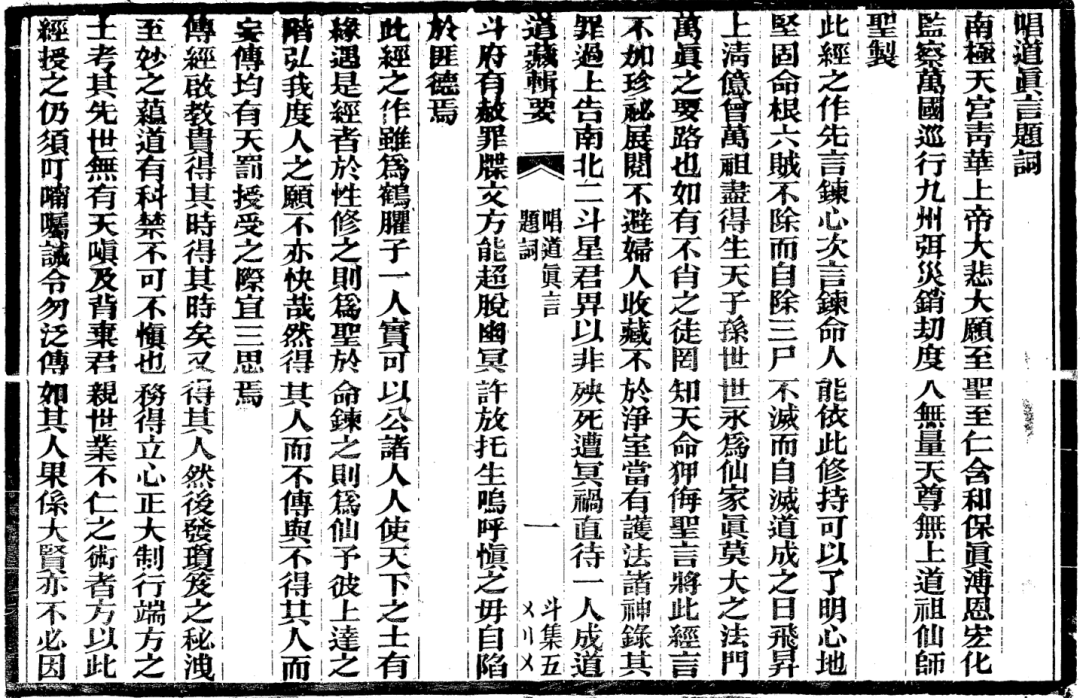 唱道眞言題詞
南極天宮靑華上帝大悲大願至聖至仁含和保眞溥恩宏化
監察萬國巡行九州弭災銷刧度人無量天尊無上道祖仙師
聖製
此經之作先言鍊心次言鍊命人能依此修持可以了明心地
堅固命根六賊不除而自除三尸不滅而自滅道成之日飛昇
上淸億曾萬祖盡得生天子孫世世永爲仙家眞莫大之法門
萬眞之要路也如有不肖之徒罔知天命狎侮聖言將此經言
不加珍祕展閱不避婦人收藏不於淨室當有護法諸神錄其
罪過上告南北二斗星君畀以非殃死遭冥禍直待一人成道
道藏輯要
唱道眞言
題詞
一
斗集五
〤〣〤
斗府有赦罪牒文方能超脫幽冥許放托生嗚呼愼之毋自陷
於匪德焉
此經之作雖爲鶴臞子一人實可以公諸人人使天下之士有
緣遇是經者於性修之則爲聖於命鍊之則爲仙予彼上達之
階弘我度人之願不亦快哉然得其人而不傳與不得其人而
妄傳均有天罰授受之際宜三思焉
傳經啟教貴得其時得其時矣又得其人然後發瓊笈之秘洩
至妙之蘊道有科禁不可不愼也務得立心正大制行端方之
士考其先世無有天嗔及背棄君親世業不仁之術者方以此
經授之仍須叮嚀囑誡令勿泛傳如其人果係大賢亦不必因